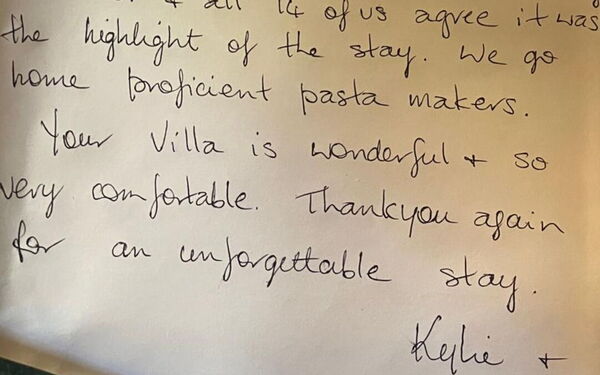 & all 14 of us agree it was
the highlight of the stay. We go
home proficient pasta makers.
Your Villa is wonderful + so
very comfortable. Thankyou again
for an unforgettable stay.
Kylie +